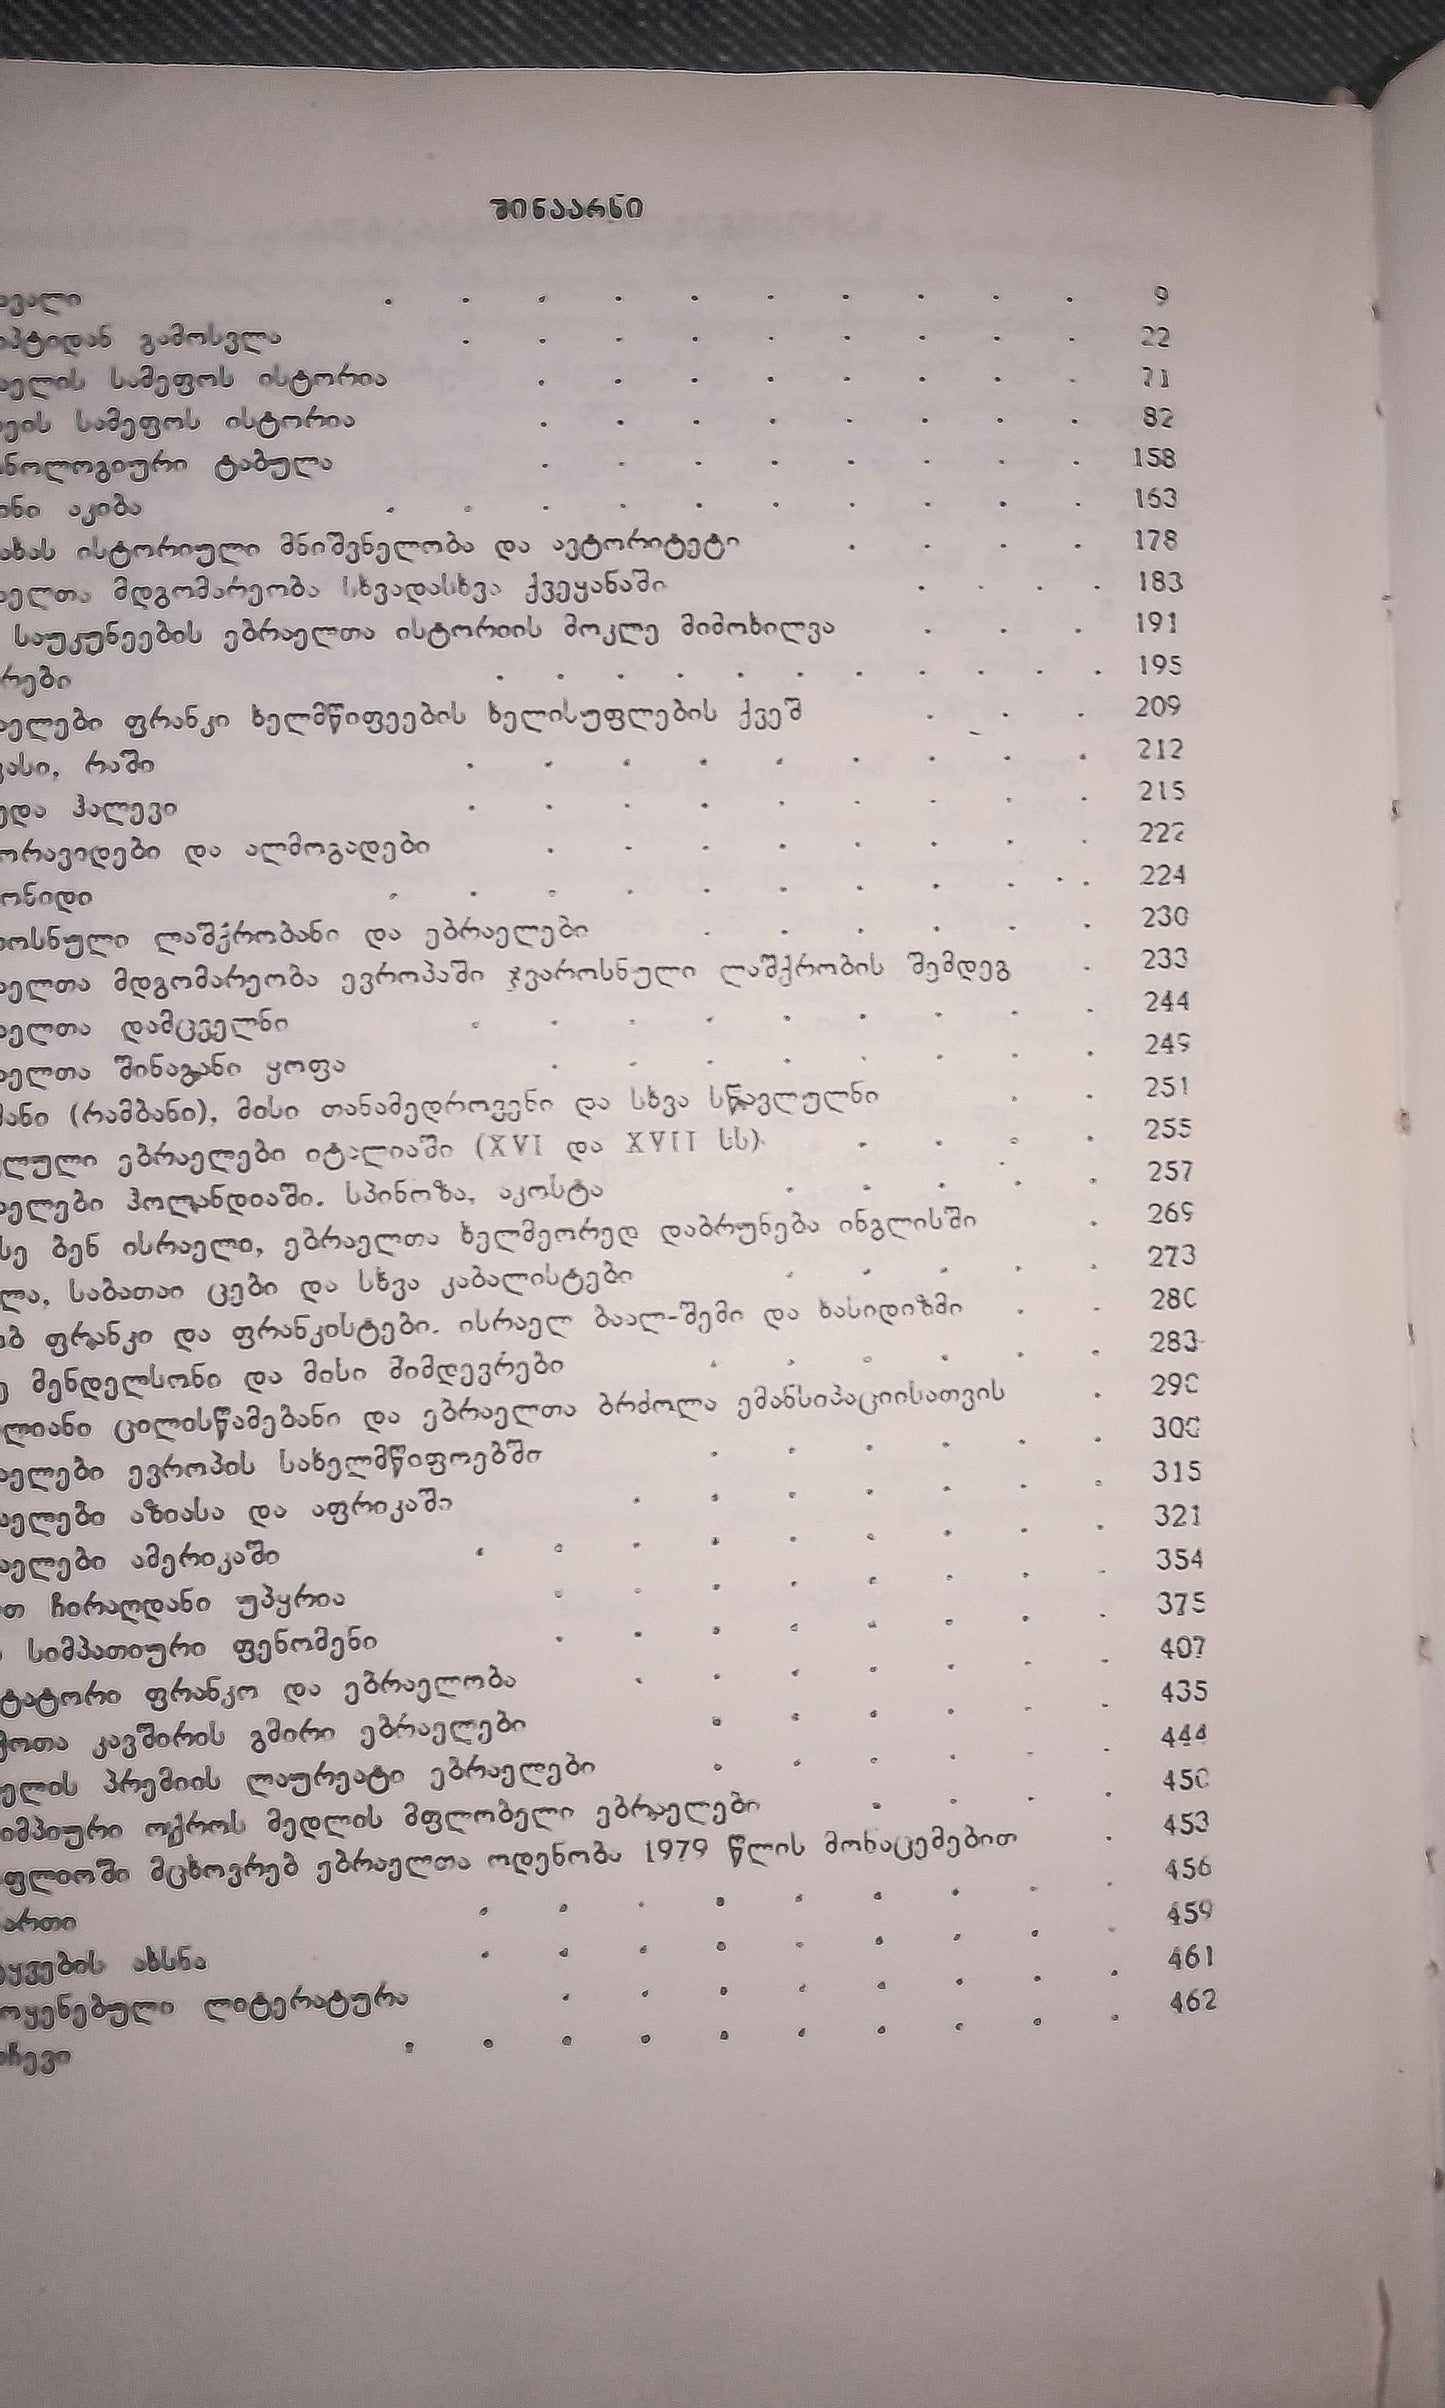 შინაარსი
ავალი . . . . . . . . . . 9
იპტიდან გამოსვლა . . . . . . . . . 22
აელის სამეფოს ისტორია . . . . . . . . 71
ეის სამეფოს ისტორია . . . . . . . . 82
ნოლოგიური ტაბულა . . . . . . . . 158
ინი აკიბა . . . . . . . . . . 163
ახას ისტორიული მნიშვნელობა და ავტორიტეტი . . . . 178
აელთა მდგომარეობა სხვადასხვა ქვეყანაში . . . . 183
საუკუნეების ებრაელთა ისტორიის მოკლე მიმოხილვა . . . 191
რები . . . . . . . . . . . 195
აელები ფრანკი ხელმწიფეების ხელისუფლების ქვეშ . . . 209
ვასი, რაში . . . . . . . . . 212
უდა ჰალევი . . . . . . . . . 215
ორავიდები და ალმოგადები . . . . . . . . 222
ონიდი . . . . . . . . . . . 224
ოსნული ლაშქრობანი და ებრაელები . . . . . . 230
აელთა მდგომარეობა ევროპაში ჯვაროსნული ლაშქრობის შემდეგ . 233
აელთა დამცველნი . . . . . . . . . 244
აელთა შინაგანი ყოფა . . . . . . . . 249
მანი (რამბანი), მისი თანამედროვენი და სხვა სწავლულნი . . 251
ლული ებრაელები იტალიაში (XVI და XVII სს) . . . . 255
აელები ჰოლანდიაში. სპინოზა, აკოსტა . . . . . 257
სე ბენ ისრაელი, ებრაელთა ხელმეორედ დაბრუნება ინგლისში . 269
ლა, საბათაი ცები და სხვა კაბალისტები . . . . . 273
ებ ფრანკი და ფრანკისტები. ისრაელ ბაალ-შემი და ხასიდიზმი . . 280
ე მენდელსონი და მისი მიმდევრები . . . . . . 283
ლიანი ცილისწამებანი და ებრაელთა ბრძოლა ემანსიპაციისათვის . 290
აელები ევროპის სახელმწიფოებში . . . . . . 300
აელები აზიასა და აფრიკაში . . . . . . . 315
აელები ამერიკაში . . . . . . . . . 321
თ ჩირაღდანი უპყრია . . . . . . . . 354
სიმპათიური ფენომენი . . . . . . . . 375
ტატორი ფრანკო და ებრაელობა . . . . . . . 407
ჭოთა კავშირის გმირი ებრაელები . . . . . . 435
ელის პრემიის ლაურეატი ებრაელები . . . . . . 444
იმპიური ოქროს მედლის მფლობელი ებრაელები . . . . 450
ფლიოში მცხოვრებ ებრაელთა ოდენობა 1979 წლის მონაცემებით . 453
ართი . . . . . . . . . 456
ყვების ახსნა . . . . . . . . . 459
ოყენებული ლიტერატურა . . . . . . . . 461
ჩევი . . . . . . . . . . 462